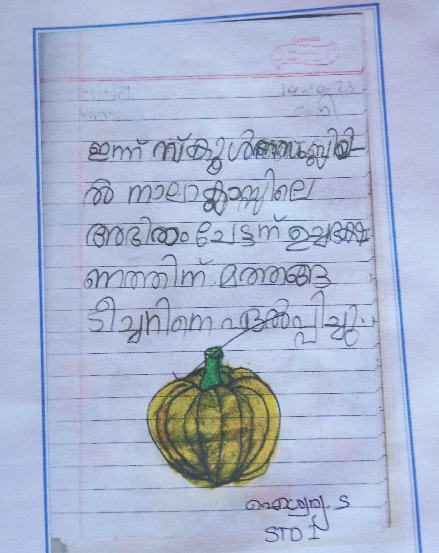 14-10-23
ഇന്ന് സ്കൂൾ അസംബ്ലിയി
ൽ നാലാ ക്ലാസ്സിലെ
അഭിരാം ചേട്ടന് ഉച്ചഭക്ഷ
ണത്തിന് മത്തങ്ങ
ടീച്ചറിനെ ഏൽപ്പിച്ചു..
ഐശ്വര്യ. S
STD I